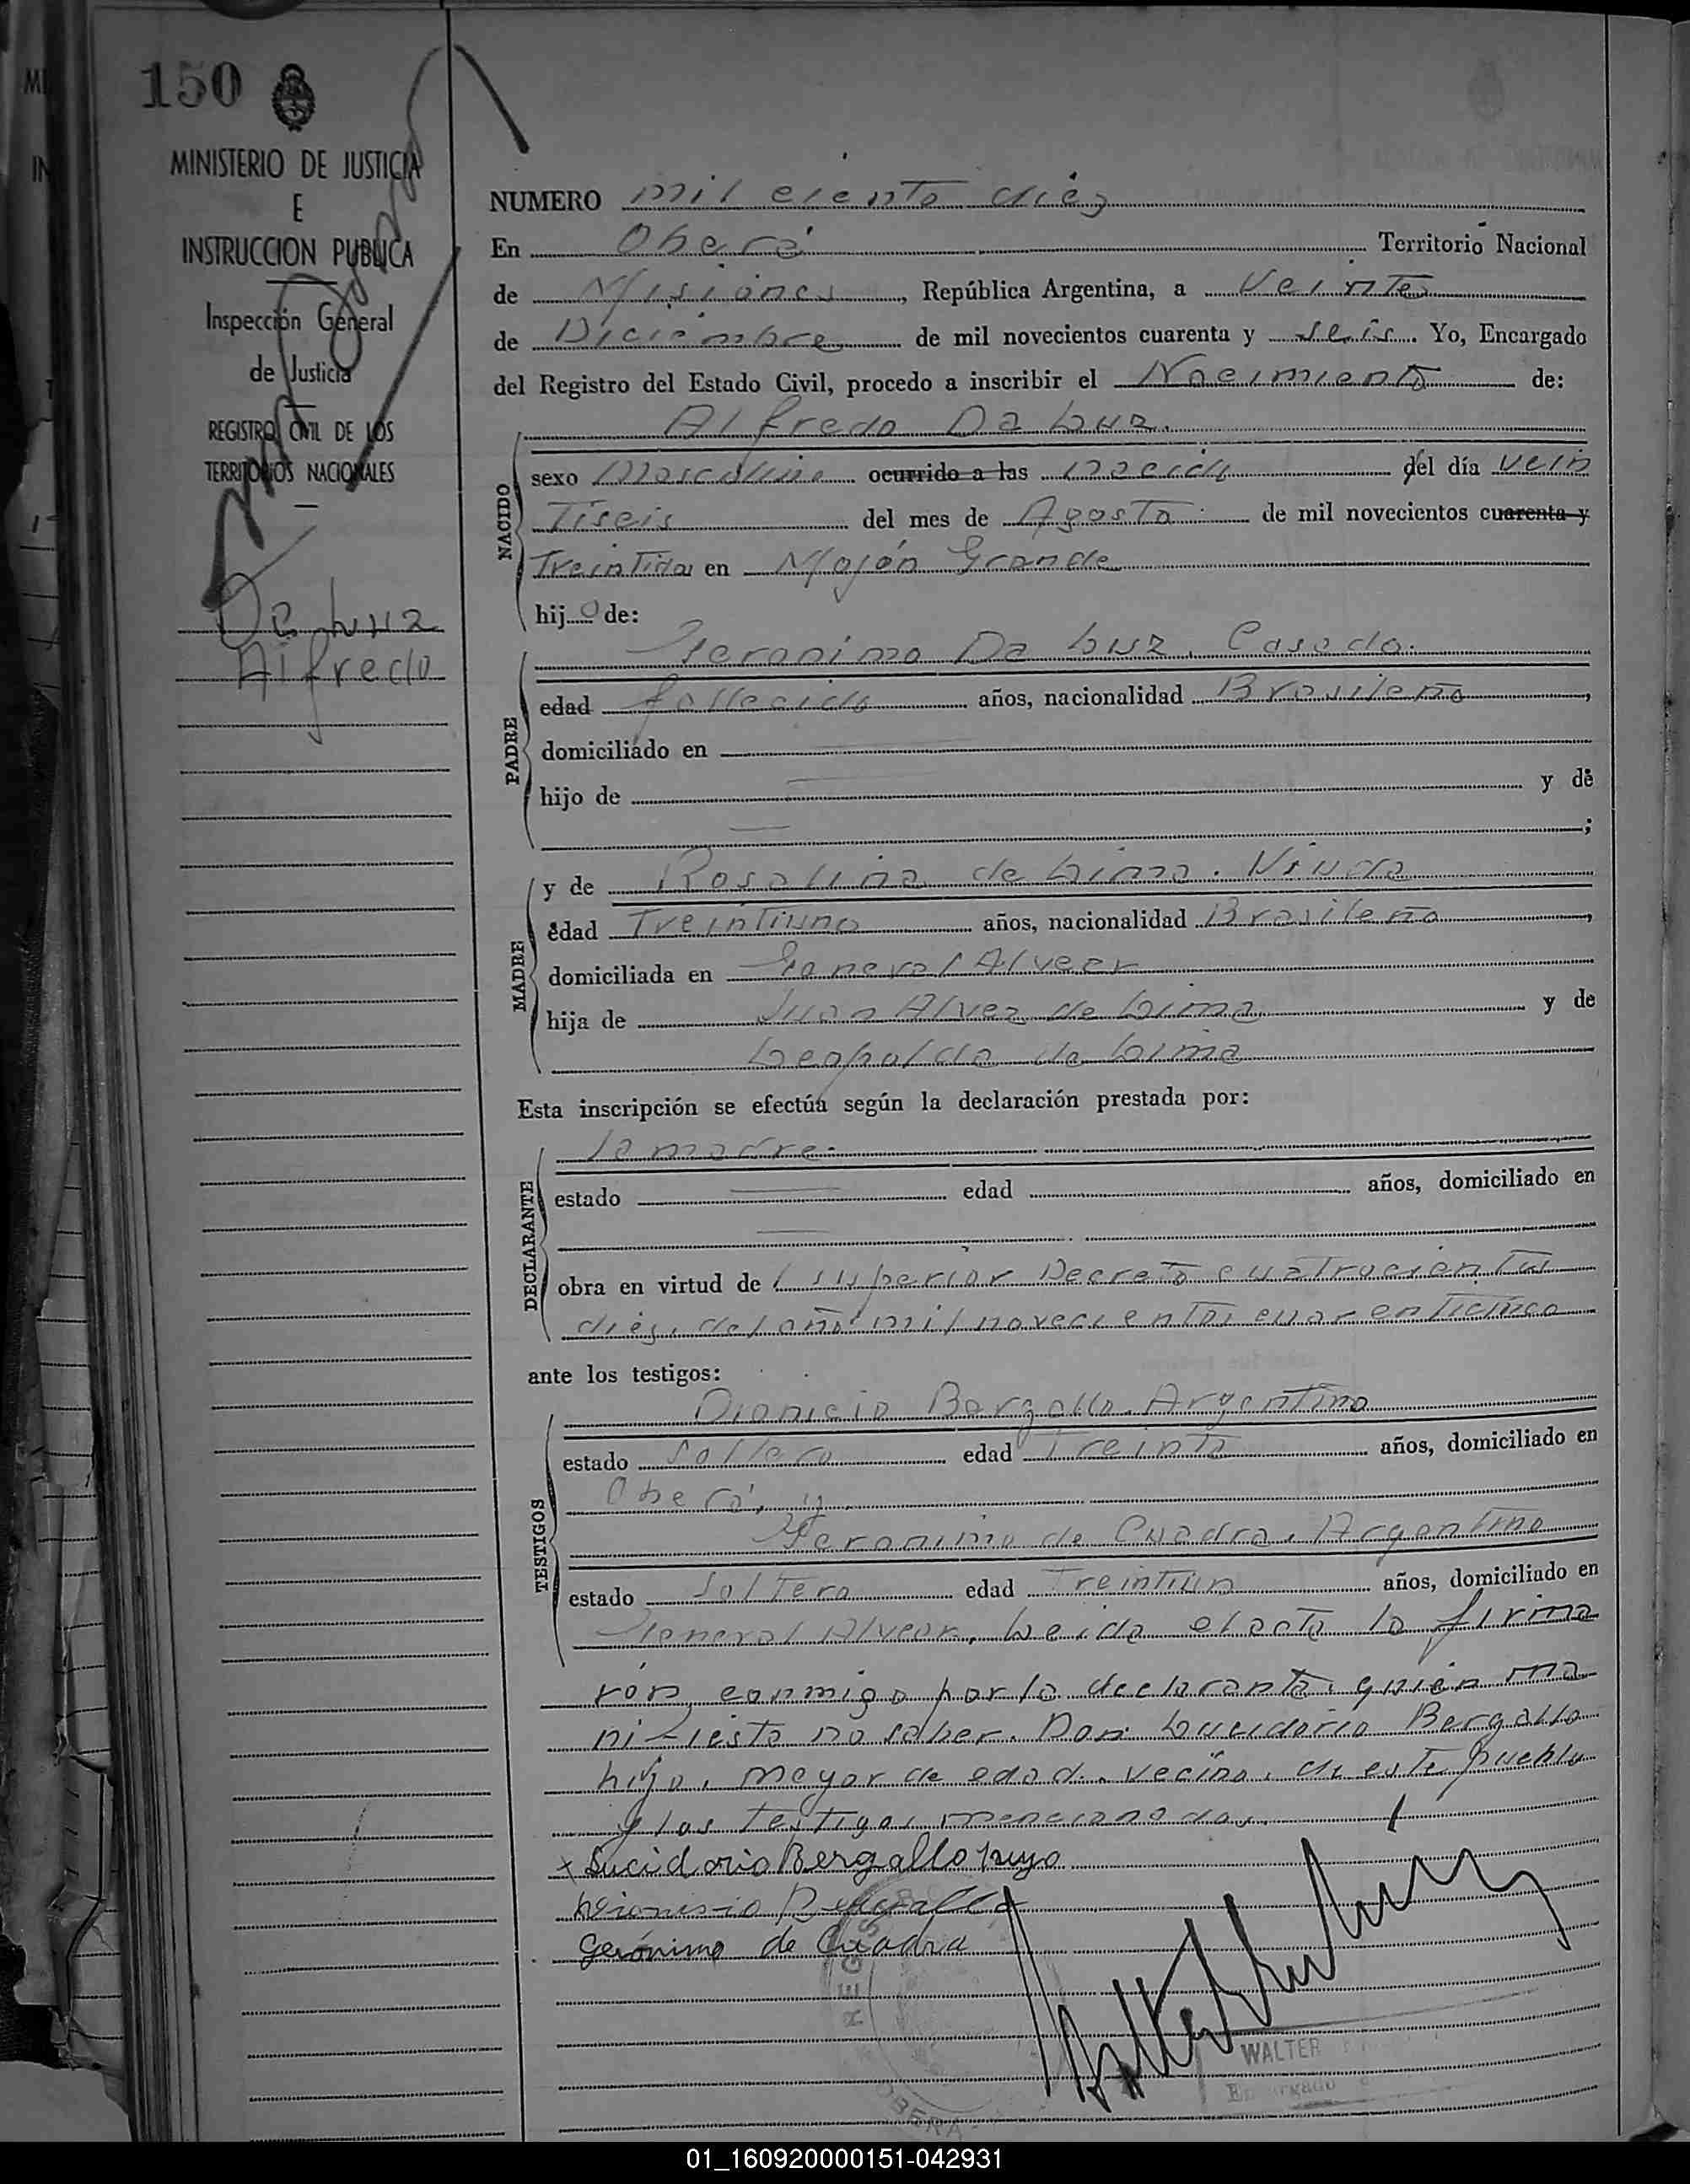 150
MINISTERIO DE JUSTICIA
E
INSTRUCCION PUBLICA
Inspección General
de Justicia
REGISTRO CIVIL DE LOS
TERRITORIOS NACIONALES
Da Luz
Alfredo
NUMERO mil ciento diez
En Oberá Territorio Nacional
de Misiones, República Argentina, a Veinte
de Diciembre de mil novecientos cuarenta y seis. Yo, Encargado
del Registro del Estado Civil, procedo a inscribir el Nacimiento de:
Alfredo Da Luz.
NACIDO
sexo Masculino ocurrido a las nacido del día vein
tiseis del mes de Agosto de mil novecientos cuarenta y
en Mojón Grande
hijo de:
PADRE
Geronimo Da Luz. Casado.
edad fallecido años, nacionalidad Brasileño,
domiciliado en
hijo de y de
;
MADRE
y de Rosalina de Lima. Viuda
edad Treintiuno años, nacionalidad Brasileña,
domiciliada en General Alvear
hija de Juan Alvez de Lima y de
Leopolda de Lima
Esta inscripción se efectúa según la declaración prestada por:
DECLARANTE
la madre.
estado edad años, domiciliado en
obra en virtud de Superior Decreto cuatrocientos
diez, del año mil novecientos cuarenticinco
ante los testigos:
TESTIGOS
Dionicio Bergallo. Argentino
estado Soltero edad Treinta años, domiciliado en
Oberá, y
Geronimo de Cuadra. Argentino
estado Soltero edad Treintiun años, domiciliado en
General Alvear. Leida el acta la firma
ron conmigo por la declarante, quién ma
nifiesta no saber. Don Lucidorio Bergallo
hijo, mayor de edad, vecino, de este pueblo
y los testigos mencionados.
x Lucidorio Bergallo huyo
Dionisio Bergallo
Gerónimo de Cuadra
WALTER
Encargado
OBERA
01_160920000151-042931